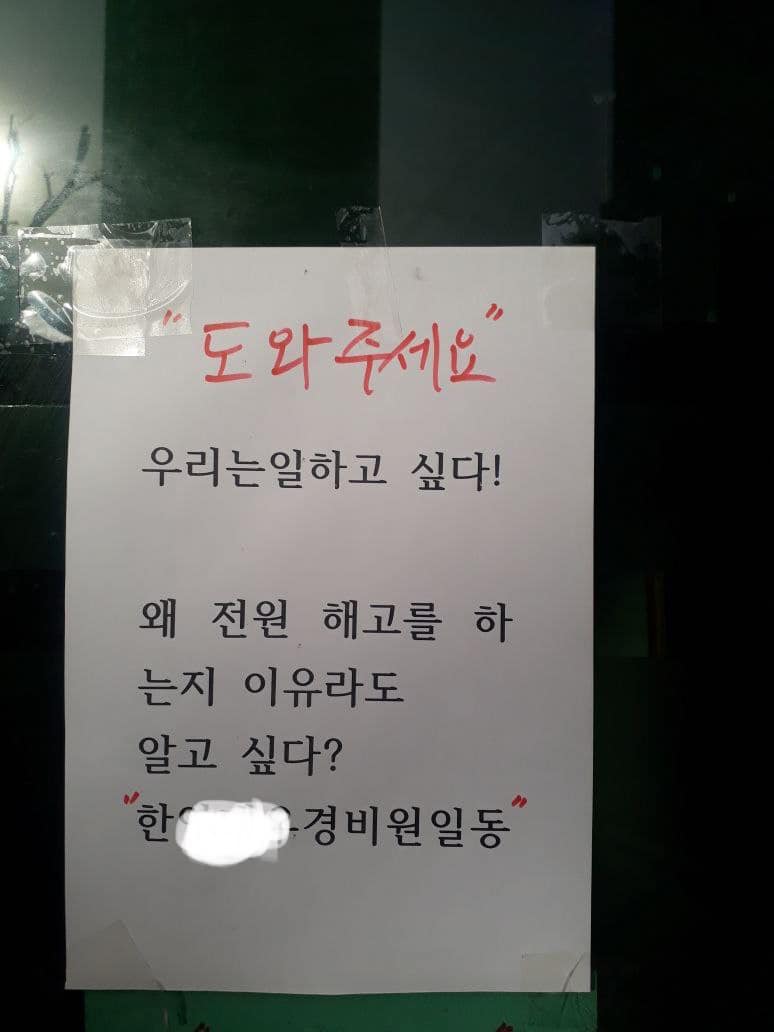 "도와주세요"
우리는일하고 싶다!
왜 전원 해고를 하
는지 이유라도
알고 싶다?
"한 경비원일동"